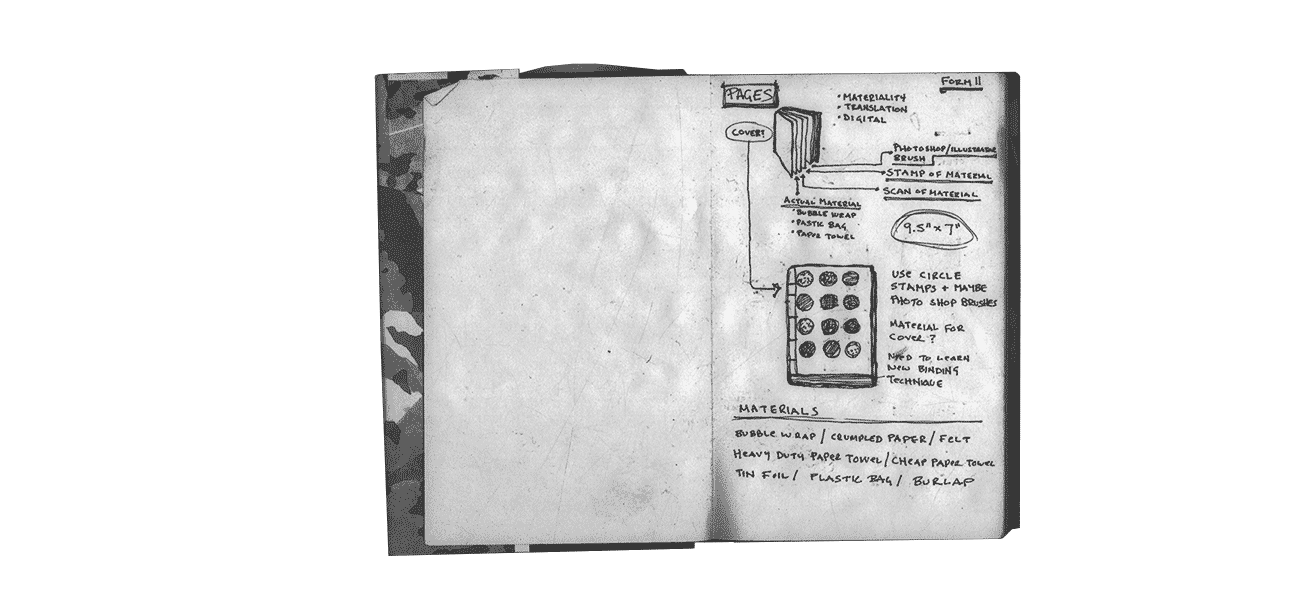 FORM II
PAGES
• MATERIALITY
• TRANSLATION
• DIGITAL
COVER?
PHOTOSHOP/ILLUSTRATOR
BRUSH
STAMP OF MATERIAL
SCAN OF MATERIAL
ACTUAL MATERIAL
• BUBBLE WRAP
• PASTIC BAG
• PAPER TOWEL
9.5" x 7"
USE CIRCLE
STAMPS + MAYBE
PHOTO SHOP BRUSHES
MATERIAL FOR
COVER?
NEED TO LEARN
NEW BINDING
TECHNIQUE
MATERIALS
BUBBLE WRAP / CRUMPLED PAPER / FELT
HEAVY DUTY PAPER TOWEL / CHEAP PAPER TOWEL
TIN FOIL / PLASTIC BAG / BURLAP